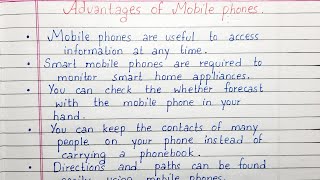 Advantages of Mobile phones.
• Mobile phones are useful to access
information at any time.
• Smart mobile phones are required to
monitor smart home appliances.
• You can check the whether forecast
with the mobile phone in your
hand.
• You can keep the contacts of many
people on your phone instead of
carrying a phonebook.
• Directions and paths can be found
easily using mobile phones.